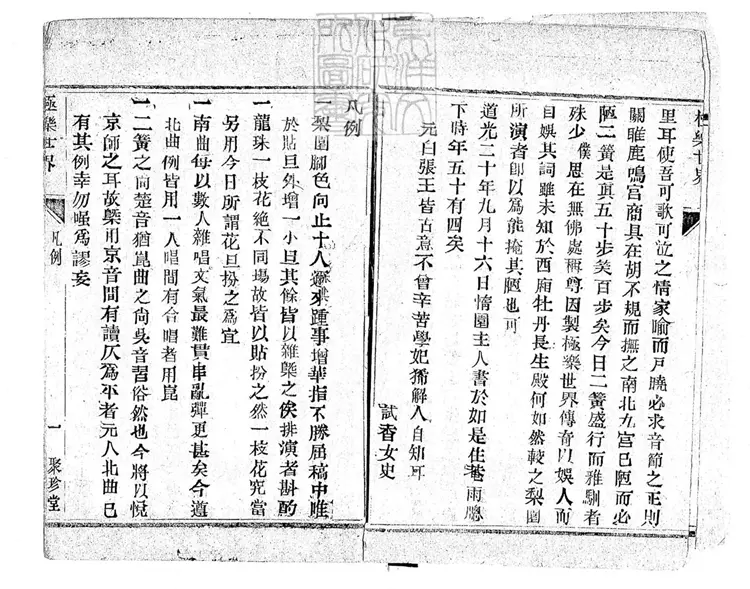 極樂世界
里耳使吾可歌可泣之情家喻而戶曉必求音節之正則
關雎鹿鳴宮商具在胡不規而撫之南北九宮已陋而必
陋二簧是眞五十步笑百步矣今日二簧盛行而雅馴者
殊少僕思在無佛處稱尊因製極樂世界傳奇以娛人而
自娛其詞雖未知於西廂牡丹長生殿何如然較之梨園
所演者卽以爲能掩其陋也可
道光二十年九月十六日惰園主人書於如是住菴雨牕
下時年五十有四矣
元白張王皆古意不曾辛苦學妃豨解人自知耳
試香女史
凡例
一梨園腳色向止十人邇來踵事增華指不勝屈稿中唯
於貼旦外增一小旦其餘皆以雜槩之俟排演者斟酌
一龍珠一枝花絶不同塲故皆以貼扮之然一枝花究當
另用今日所謂花旦扮之爲宜
一南曲每以數人雜唱文氣最難貫串亂彈更甚矣今遵
北曲例皆用一人唱間有合唱者用崑
一二簧之尙楚音猶崑曲之尙吳音習俗然也今將以悅
京師之耳故槩用京音間有讀仄爲平者元人北曲已
有其例幸勿嗤爲謬妄
極樂世界
凡例
一
聚珍堂